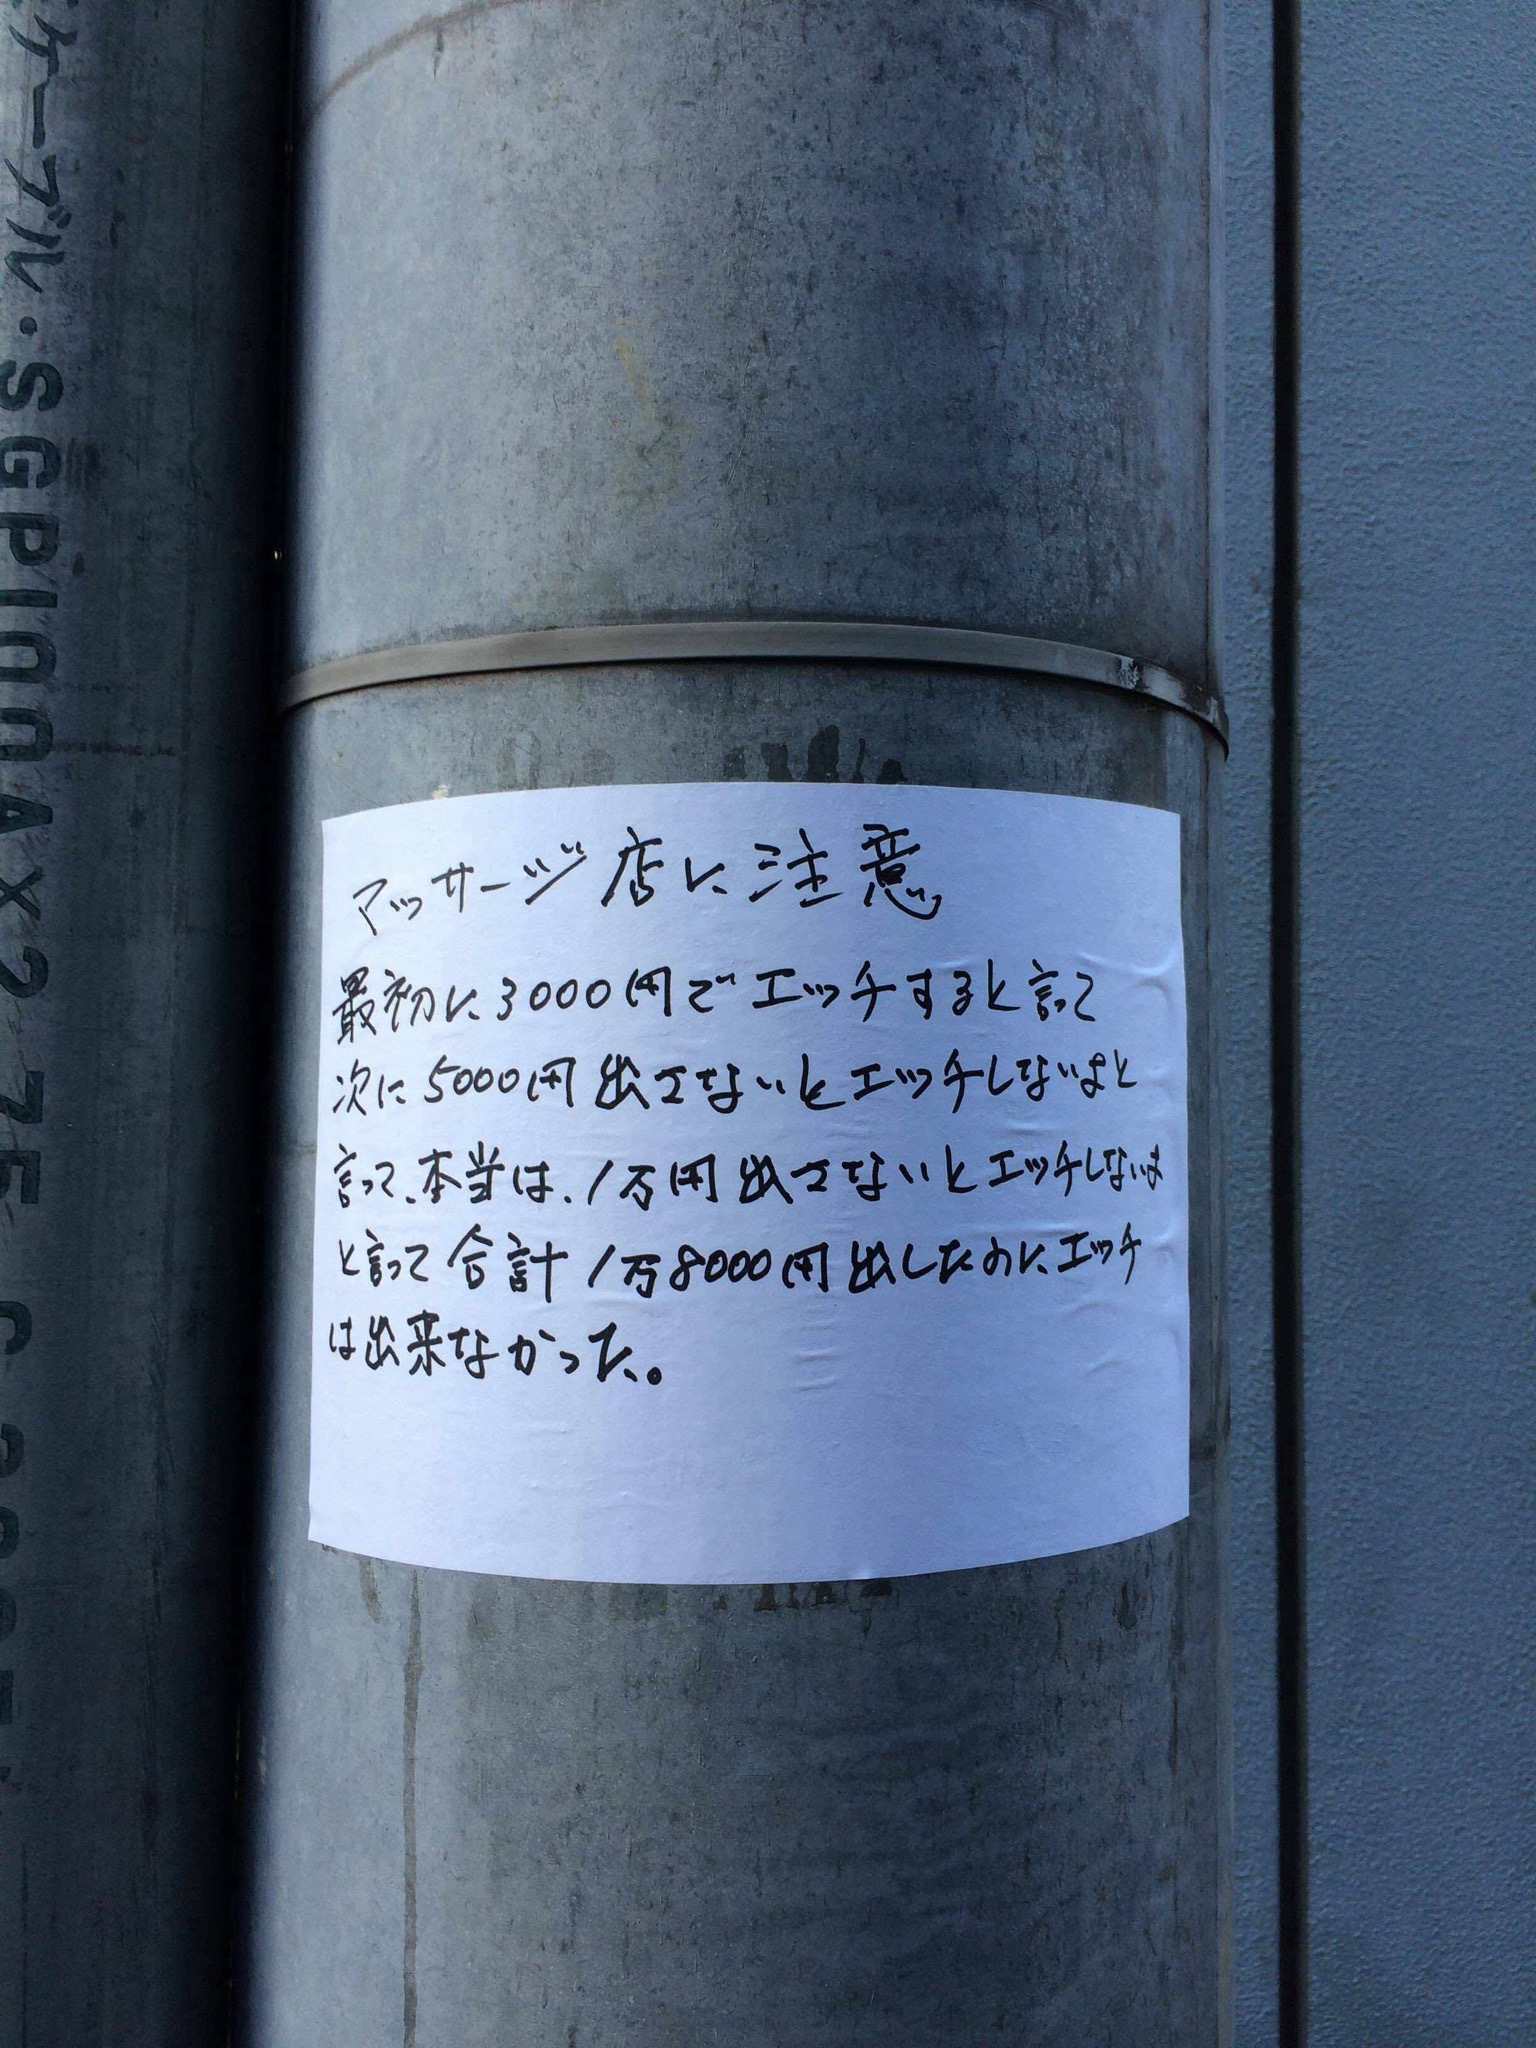 ケーブル・SGP100AX275
マッサージ店に注意
最初に3000円でエッチすると言って
次に5000円出さないとエッチしないよと
言って、本当は、1万円出さないとエッチしないよ
と言って合計1万8000円出したのにエッチ
は出来なかった。